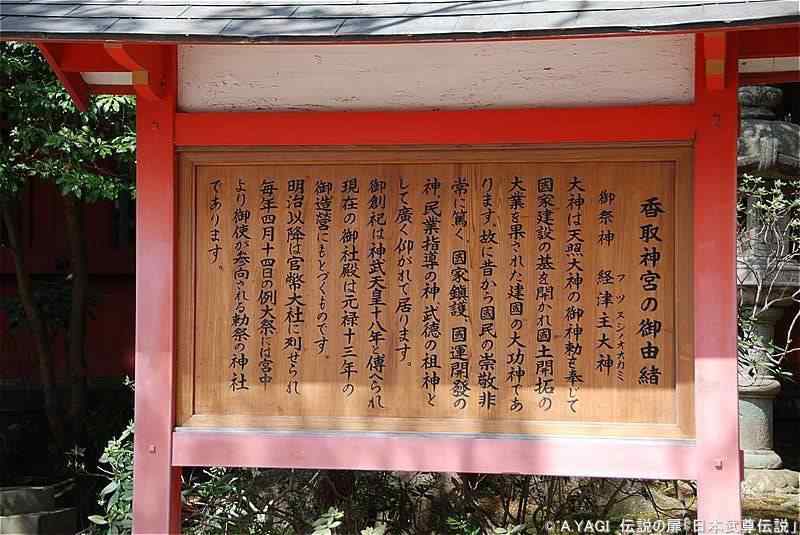 香取神宮の御由緒
御祭神　経津主大神
フツヌシノオオカミ
大神は天照大神の御神勅を奉して
國家建設の基を開かれ國土開拓の
大業を果された建國の大功神であ
ります。故に昔から國民の崇敬非
常に篤く、國家鎮護、國運開發の
神、民業指導の神、武徳の祖神と
して廣く仰がれて居ります。
御創祀は神武天皇十八年と傳へられ
現在の御社殿は元禄十三年の
御造営にもとづくものです。
明治以降は官幣大社に列せられ
毎年四月十四日の例大祭には宮中
より御使が参向される勅祭の神社
であります。
© A.YAGI 伝説の扉「日本武尊伝説」